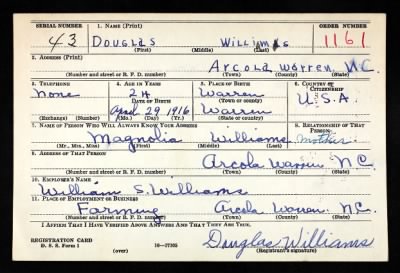 SERIAL NUMBER 1. NAME (Print) ORDER NUMBER
43 DOUGLAS WILLIAMS 1161
(First) (Middle) (Last)
2. ADDRESS (Print)
Arcola Warren, N.C.
(Number and street or R. F. D. number) (Town) (County) (State)
3. TELEPHONE 4. AGE IN YEARS 5. PLACE OF BIRTH 6. COUNTRY OF CITIZENSHIP
none 24 Warren U.S.A.
DATE OF BIRTH (Town or county)
April 29 1916 Warren
(Exchange) (Number) (Mo.) (Day) (Yr.) (State or country)
7. NAME OF PERSON WHO WILL ALWAYS KNOW YOUR ADDRESS 8. RELATIONSHIP OF THAT PERSON
Magnolia Williams mother
(Mr., Mrs., Miss) (First) (Middle) (Last)
9. ADDRESS OF THAT PERSON
Arcola Warren N.C.
(Number and street or R. F. D. number) (Town) (County) (State)
10. EMPLOYER'S NAME
William S. Williams
11. PLACE OF EMPLOYMENT OR BUSINESS
Farming Arcola Warren N.C.
(Number and street or R. F. D. number) (Town) (County) (State)
I AFFIRM THAT I HAVE VERIFIED ABOVE ANSWERS AND THAT THEY ARE TRUE.
REGISTRATION CARD
D. S. S. Form 1 16—17105 Douglas Williams
(over) (Registrant's signature)